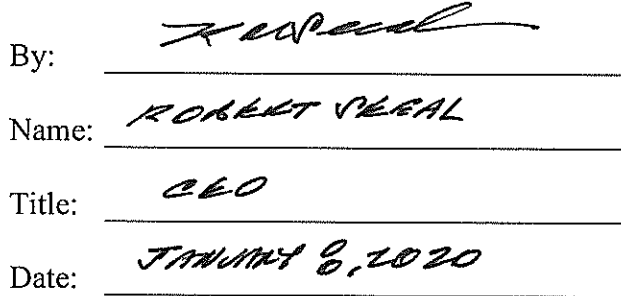 By:
Name: ROBERT
Title: CEO
Date: JANUARY 8, 2020